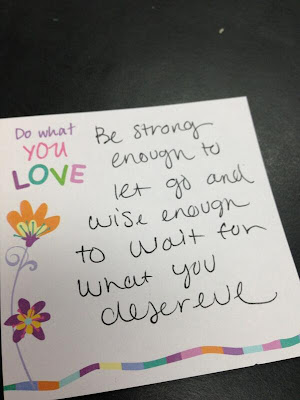 Do what
YOU
LOVE
Be strong
enough to
let go and
wise enough
to wait for
what you
desereve